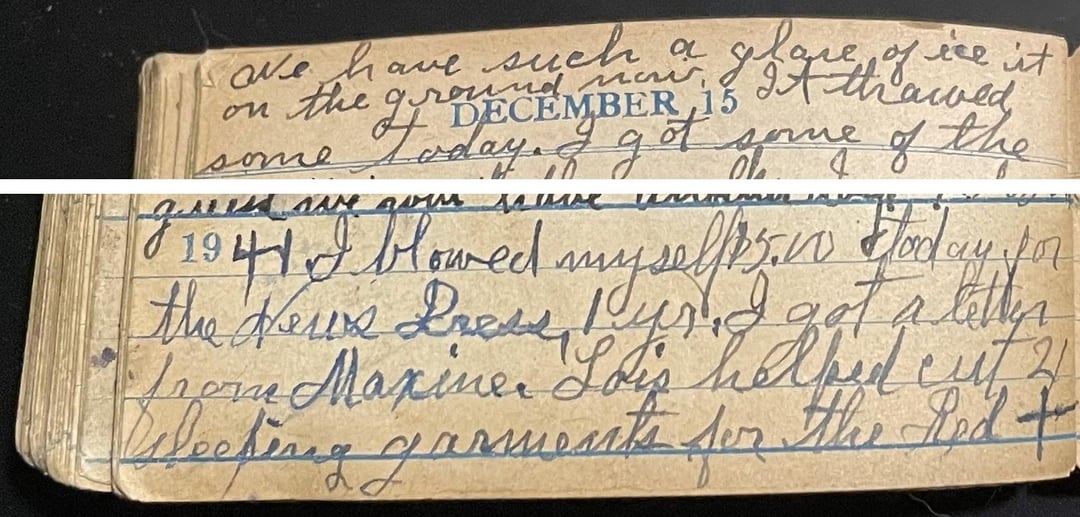 We have such a glare of ice it
on the ground now. It thawed
DECEMBER 15
some today. I got some of the
guess we
1941 I blowed myself $5.00 today for
the News Press, 1 yr. I got a letter
from Maxine. Lois helped cut 21
sleeping garments for the Red +